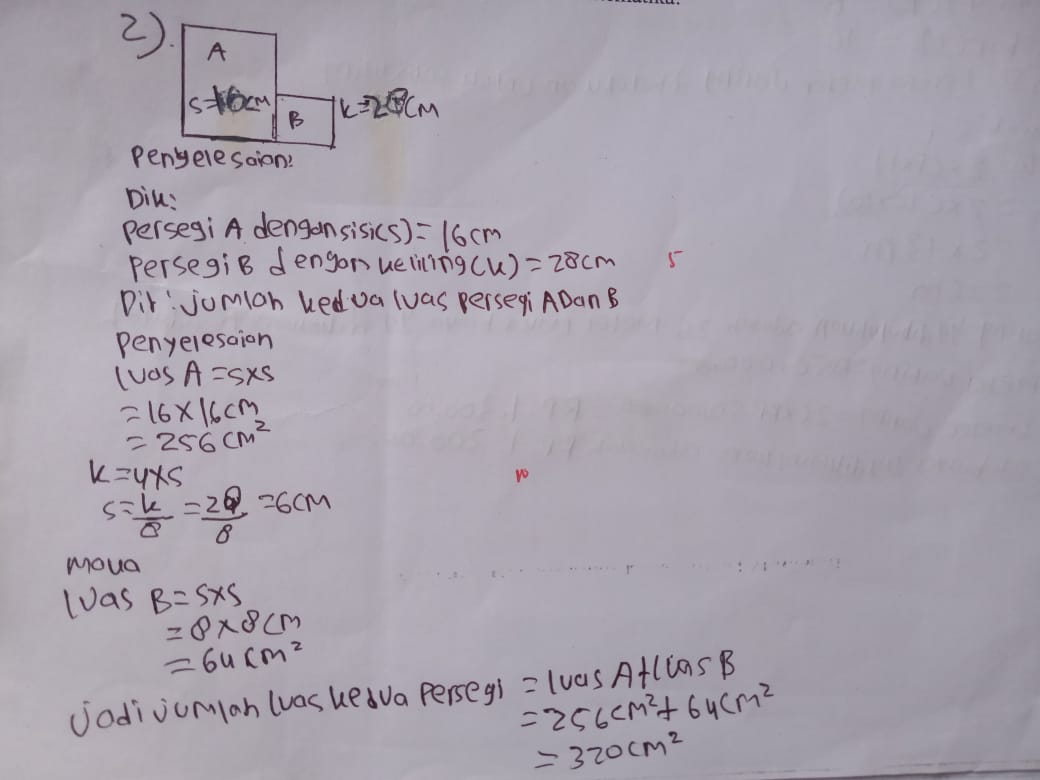 2).
A
S=16cm
B
K=28CM
Penyelesaian:
Dik:
Persegi A dengan sisi(s)= 16cm
Persegi B dengan keliling(k)=28cm
5
Dit: jumlah kedua luas persegi A Dan B
Penyelesaian
luas A =sxs
=16X16cm
=256cm²
K=4xs
10
s=k/8 =28/8 =6cm
maka
luas B=sxs
=8x8cm
=64cm²
jadi jumlah luas kedua Persegi =luas A+luas B
=256cm²+64cm²
=320cm²